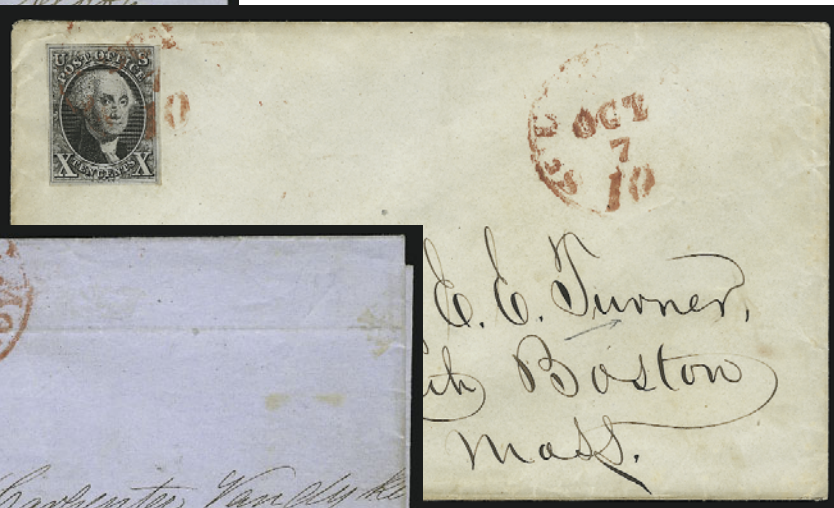 U S
POST OFFICE
X TEN CENTS X
10
OCT
7
10
E. E. Turner,
Boston
Mass.
Carpenter Vandyke